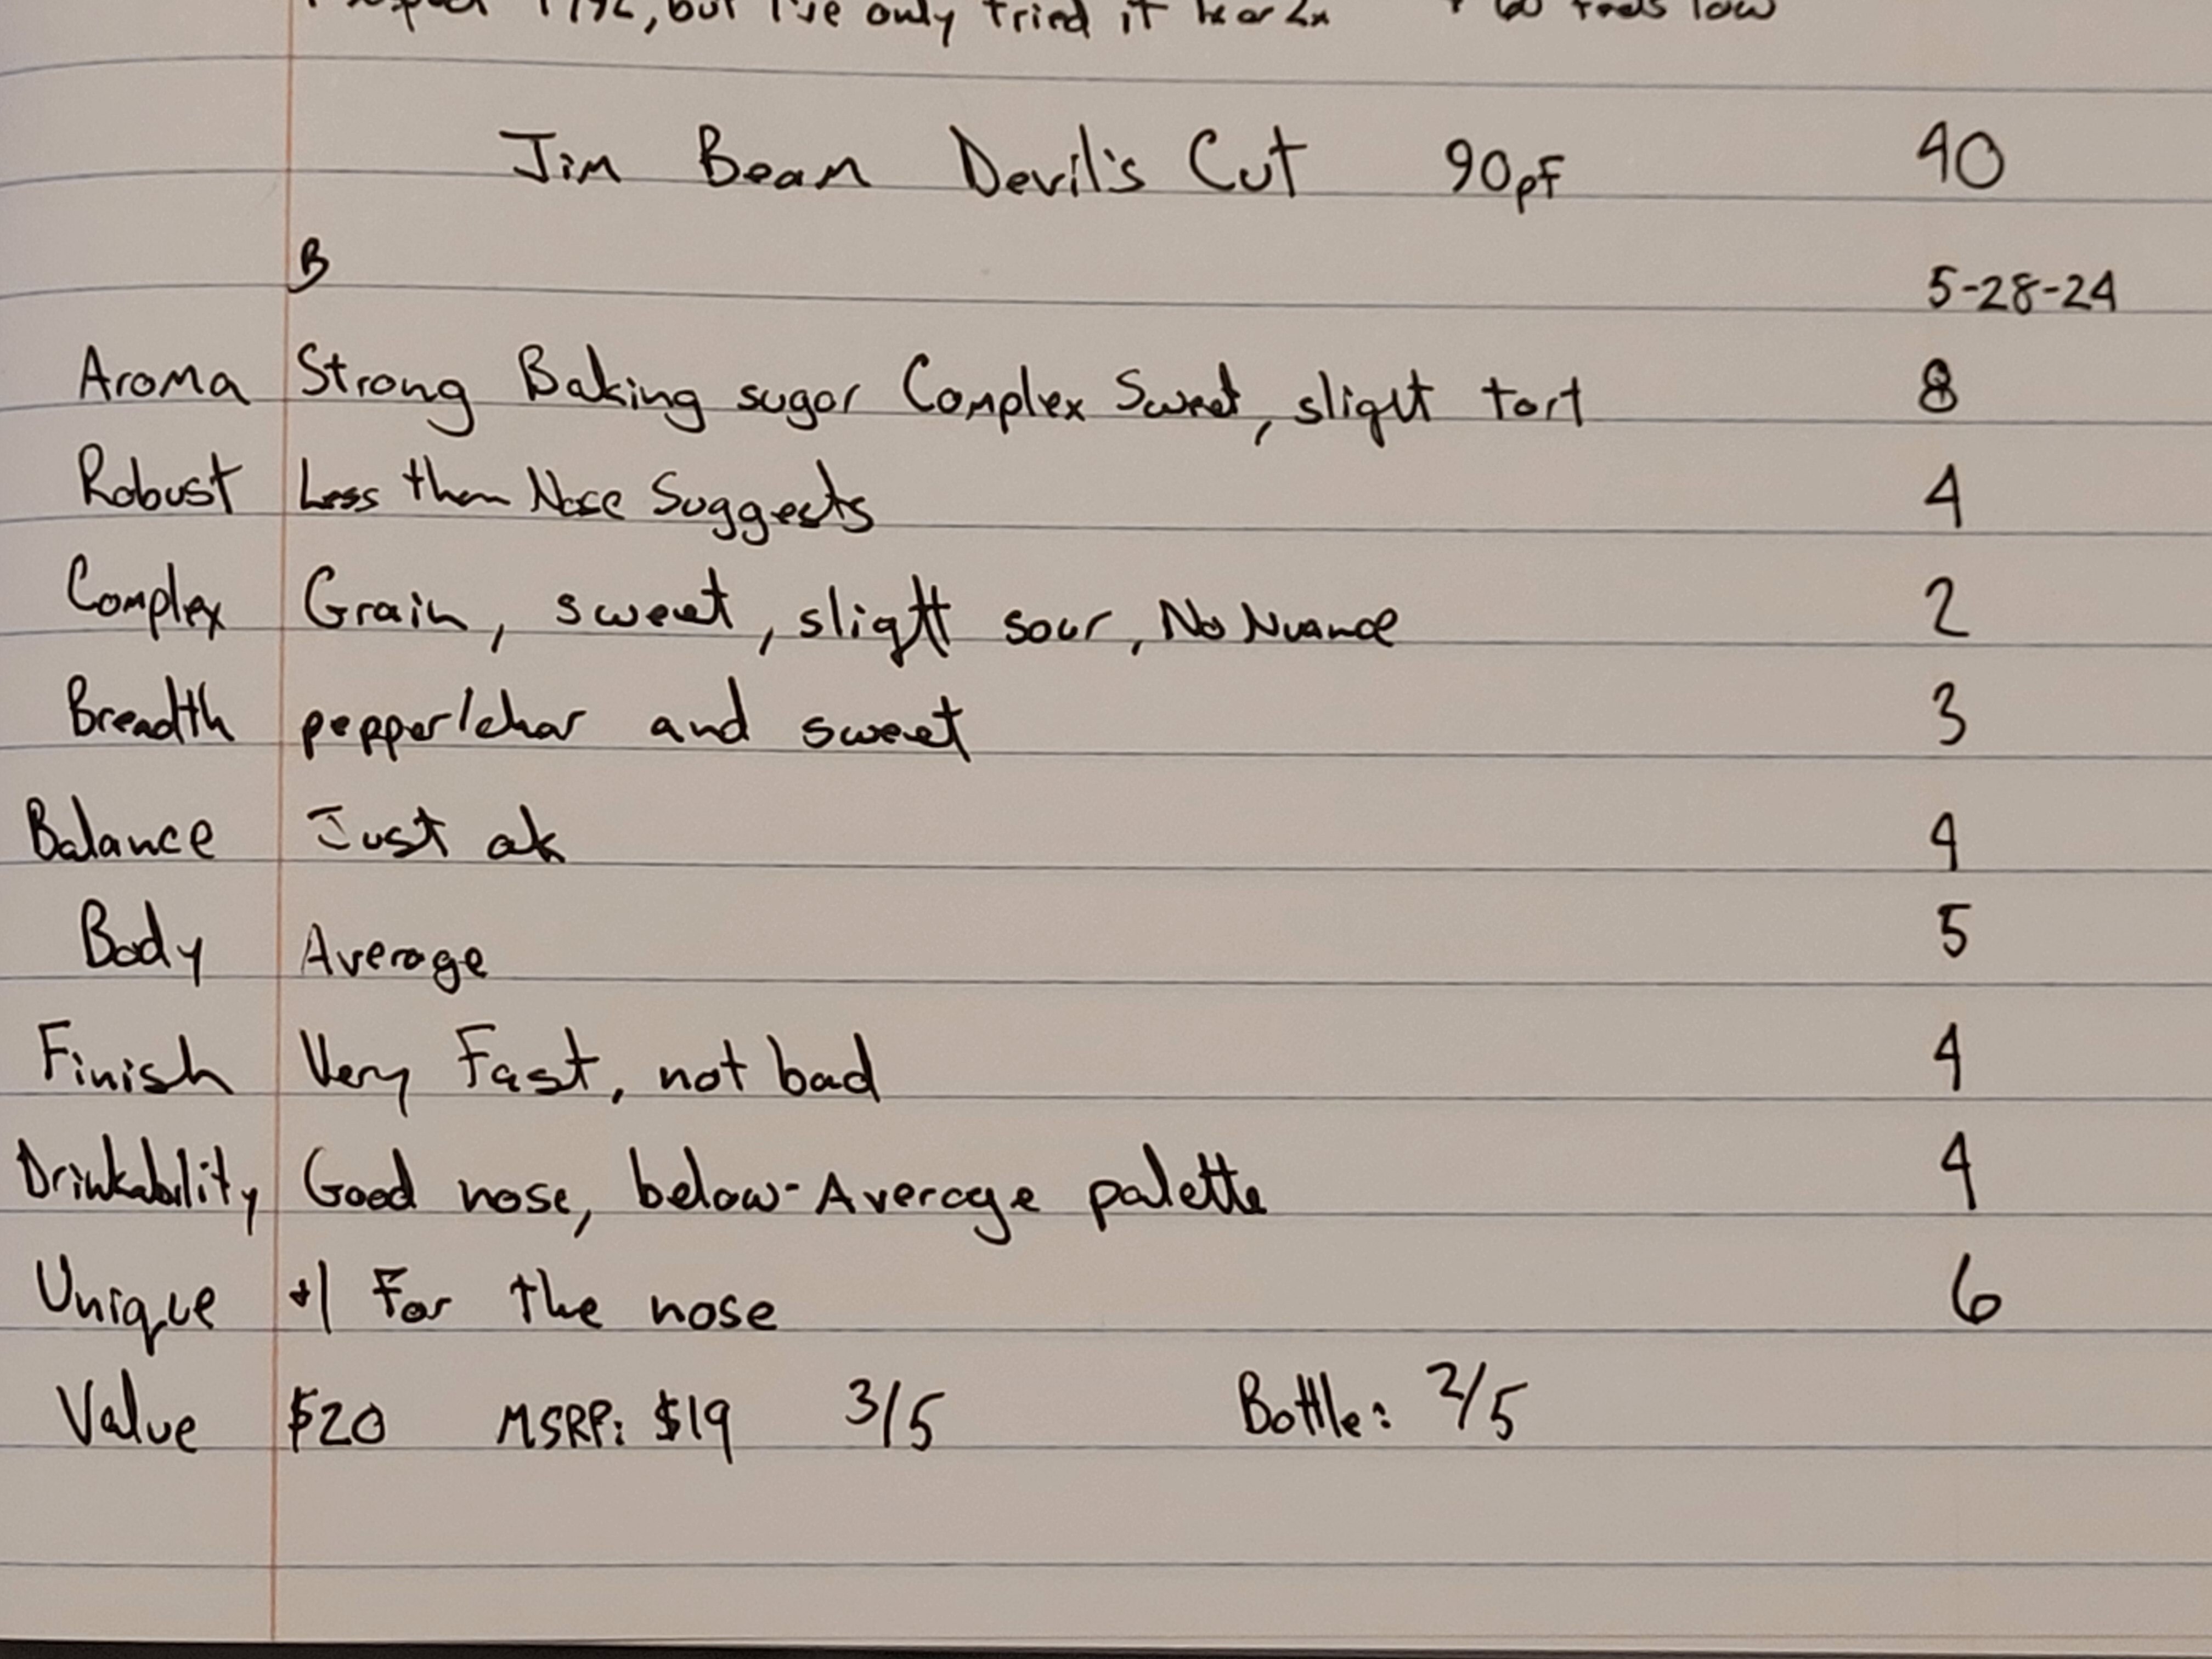 , but I've only tried it 1x or 2x low
Jim Beam Devil's Cut 90pf 40
B
5-28-24
Aroma Strong Baking sugar Complex Sweet, slight tart 8
Robust Less than Nose Suggests 4
Complex Grain, sweet, slight sour, No Nuance 2
Breadth pepper/char and sweet 3
Balance Just ok 4
Body Average 5
Finish Very Fast, not bad 4
Drinkability Good nose, below-Average palette 4
Unique +1 For the nose 6
Value $20 MSRP: $19 3/5 Bottle: 2/5